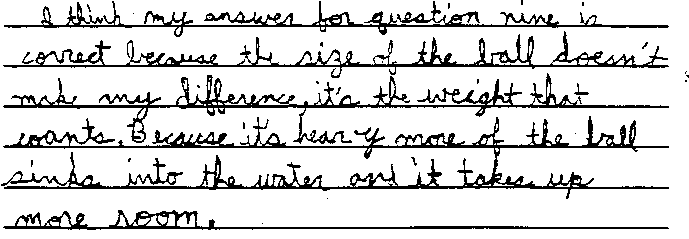 I think my answer for question nine is
correct because the size of the ball doesn't
make my difference, it's the weight that
counts. Because it's heavy more of the ball
sinks into the water and it takes up
more room.